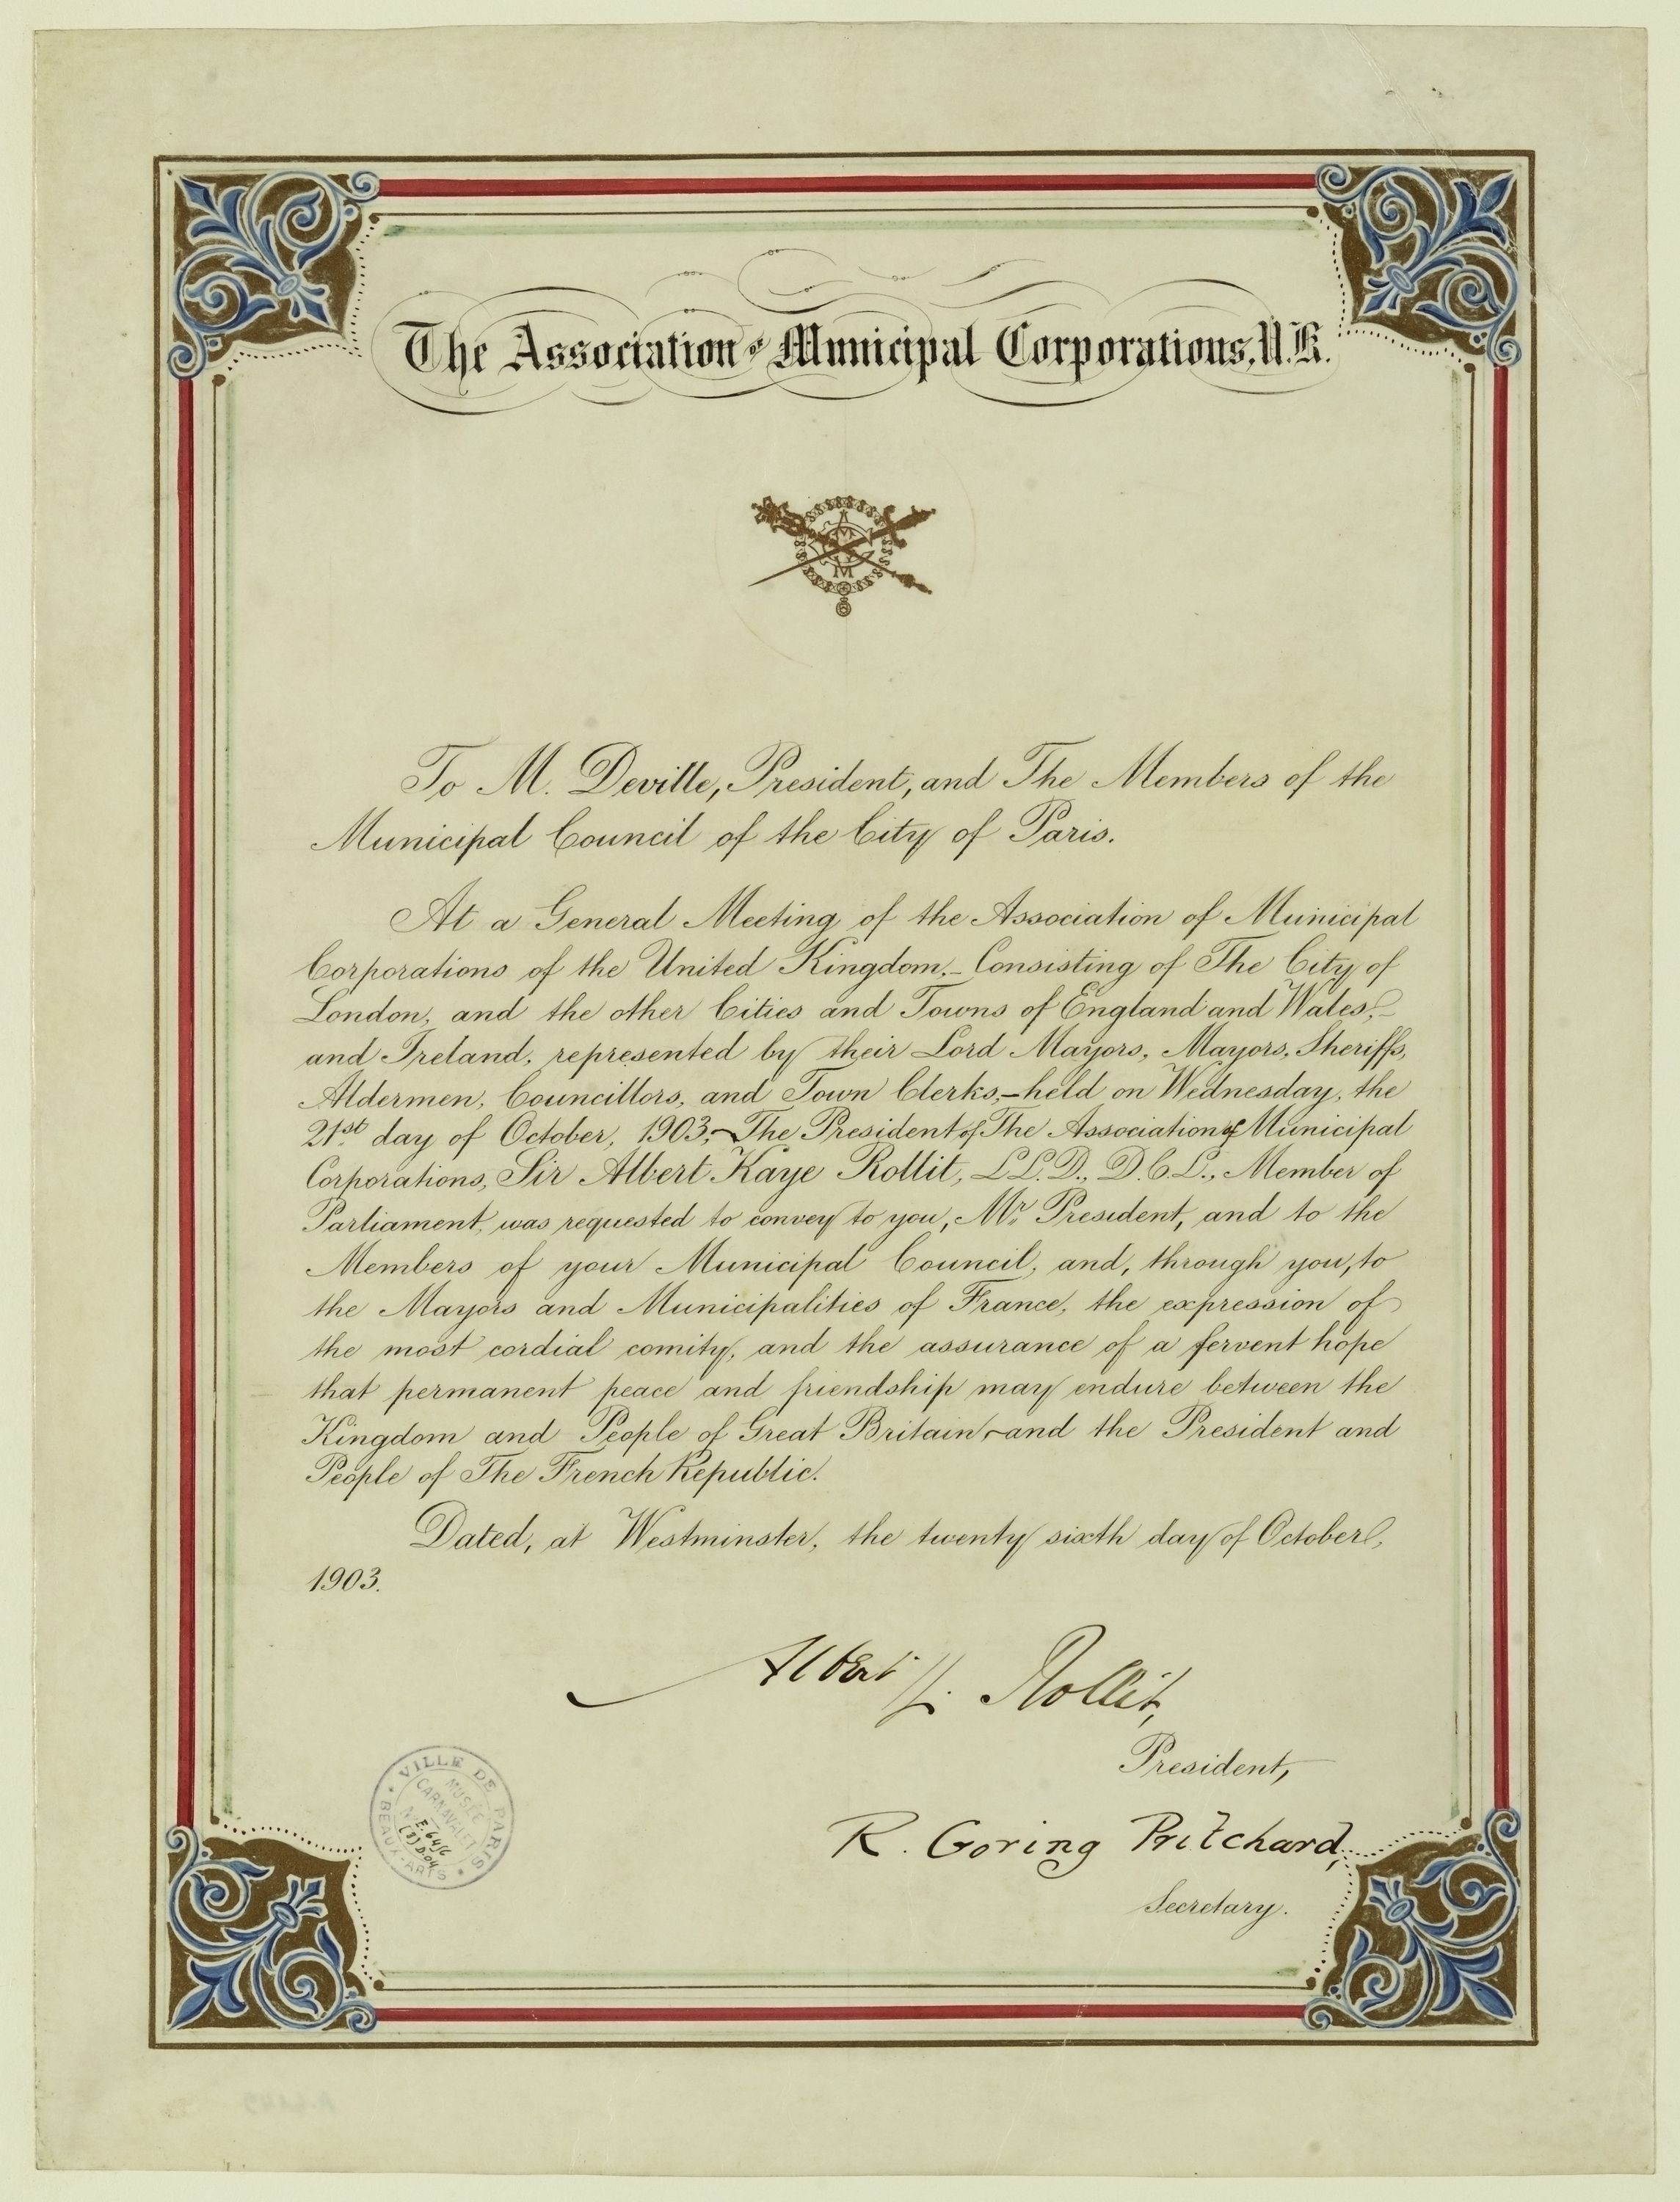 The Association of Municipal Corporations, U.K.
To M. Deville, President, and The Members of the
Municipal Council of the City of Paris.
At a General Meeting of the Association of Municipal
Corporations of the United Kingdom,– Consisting of The City of
London, and the other Cities and Towns of England and Wales,–
and Ireland, represented by their Lord Mayors, Mayors, Sheriffs,
Aldermen, Councillors, and Town Clerks,– held on Wednesday, the
21st day of October, 1903,– The President of The Association of Municipal
Corporations, Sir Albert Kaye Rollit, LL.D., D.C.L., Member of
Parliament, was requested to convey to you, Mr. President, and to the
Members of your Municipal Council, and, through you, to
the Mayors and Municipalities of France, the expression of
the most cordial comity, and the assurance of a fervent hope
that permanent peace and friendship may endure between the
Kingdom and People of Great Britain – and the President and
People of The French Republic.
Dated, at Westminster, the twenty sixth day of October,
1903.
Albert K. Rollit,
President,
R. Goring Pritchard,
Secretary.
VILLE DE PARIS
BEAUX-ARTS
MUSÉE
CARNAVALET